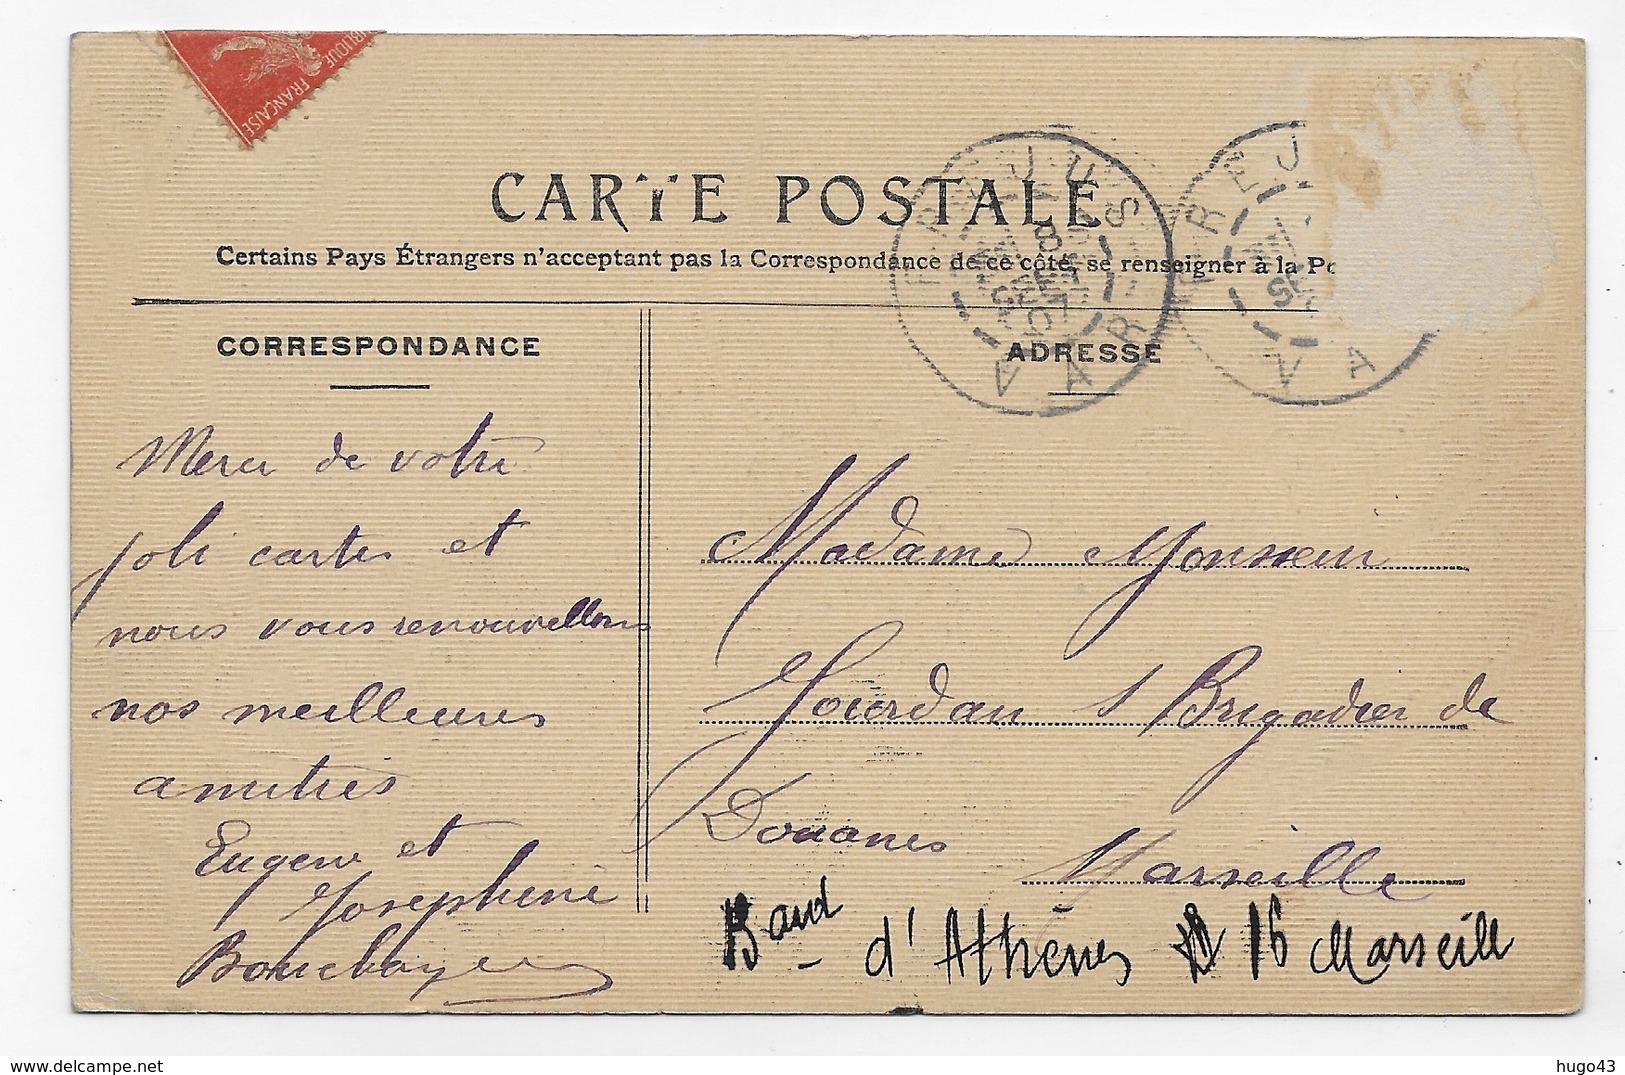 BLIQUE FRANÇAISE
CARTE POSTALE
Certains Pays Étrangers n'acceptant pas la Correspondance de ce côté, se renseigner à la Po
FREJUS
VAR
FREJ
VA
CORRESPONDANCE
ADRESSE
Merci de votre
joli cartes et
nous vous renouvellons
nos meilleures
amitiés
Eugene et
Josephine
Madame Monsieur
Jourdan s/Brigadier de
Douanes
Marseille
Bard d'Athènes 16 Marseill
www.delcampe.net
hugo43